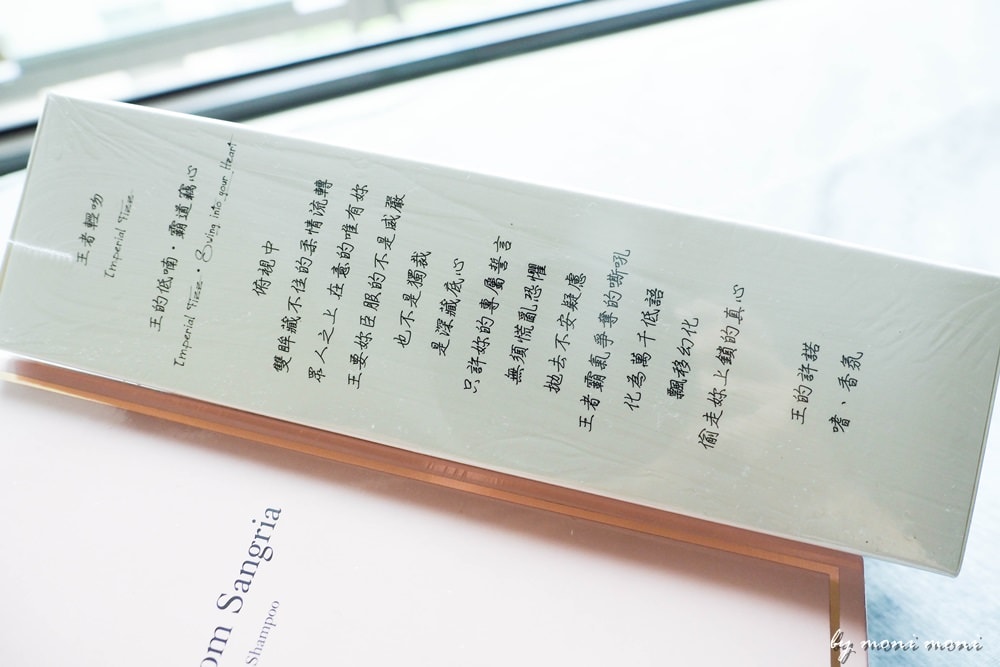 王者輕吻
Imperial Tize
王的低喃・霸道竊心
Imperial Tize・Bving into your Heart
俯視中
雙眸藏不住的柔情流轉
眾人之上在意的唯有妳
王要妳臣服的不是威嚴
也不是獨裁
是深藏底心
只許妳的專屬誓言
無須慌亂恐懼
拋去不安疑慮
王者霸氣爭奪的嘶吼
化為萬千低語
飄移幻化
偷走妳上鎖的真心
王的許諾
嗜、香氛
om Sangria
Shampoo
by moni moni